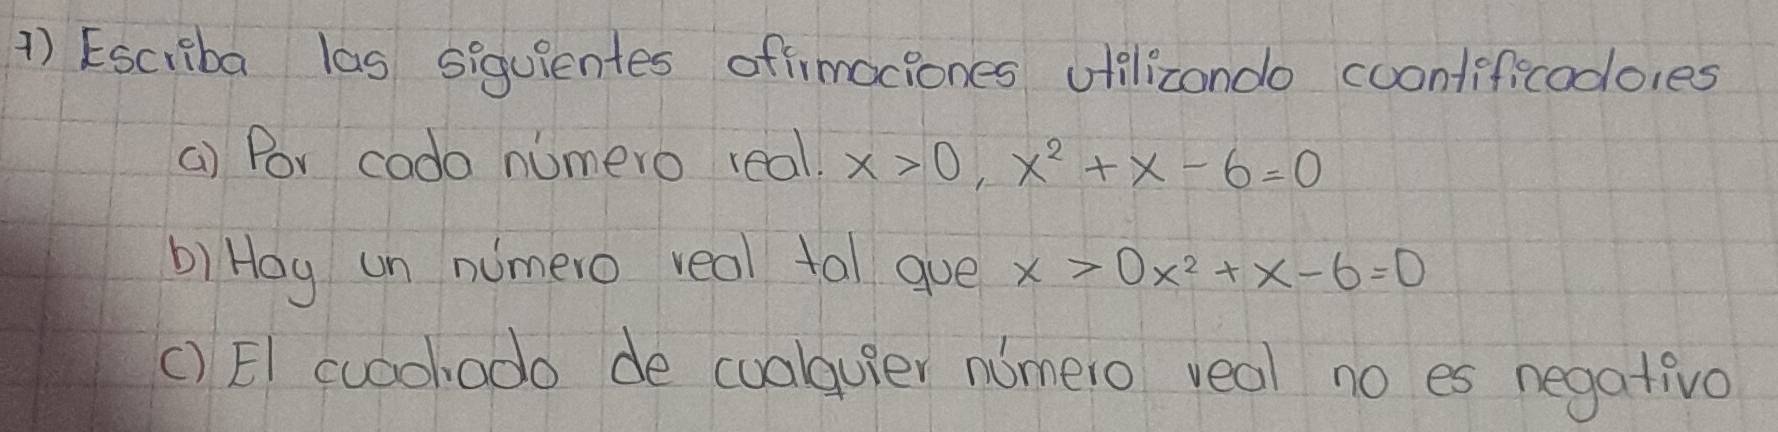 7) Escriba las siguientes afirmaciones utilizando cuantificadores
a) Por cada número real. x > 0, x² + x - 6 = 0
b) Hay un número real tal que x > 0x² + x - 6 = 0
c) El cuadrado de cualquier número real no es negativo